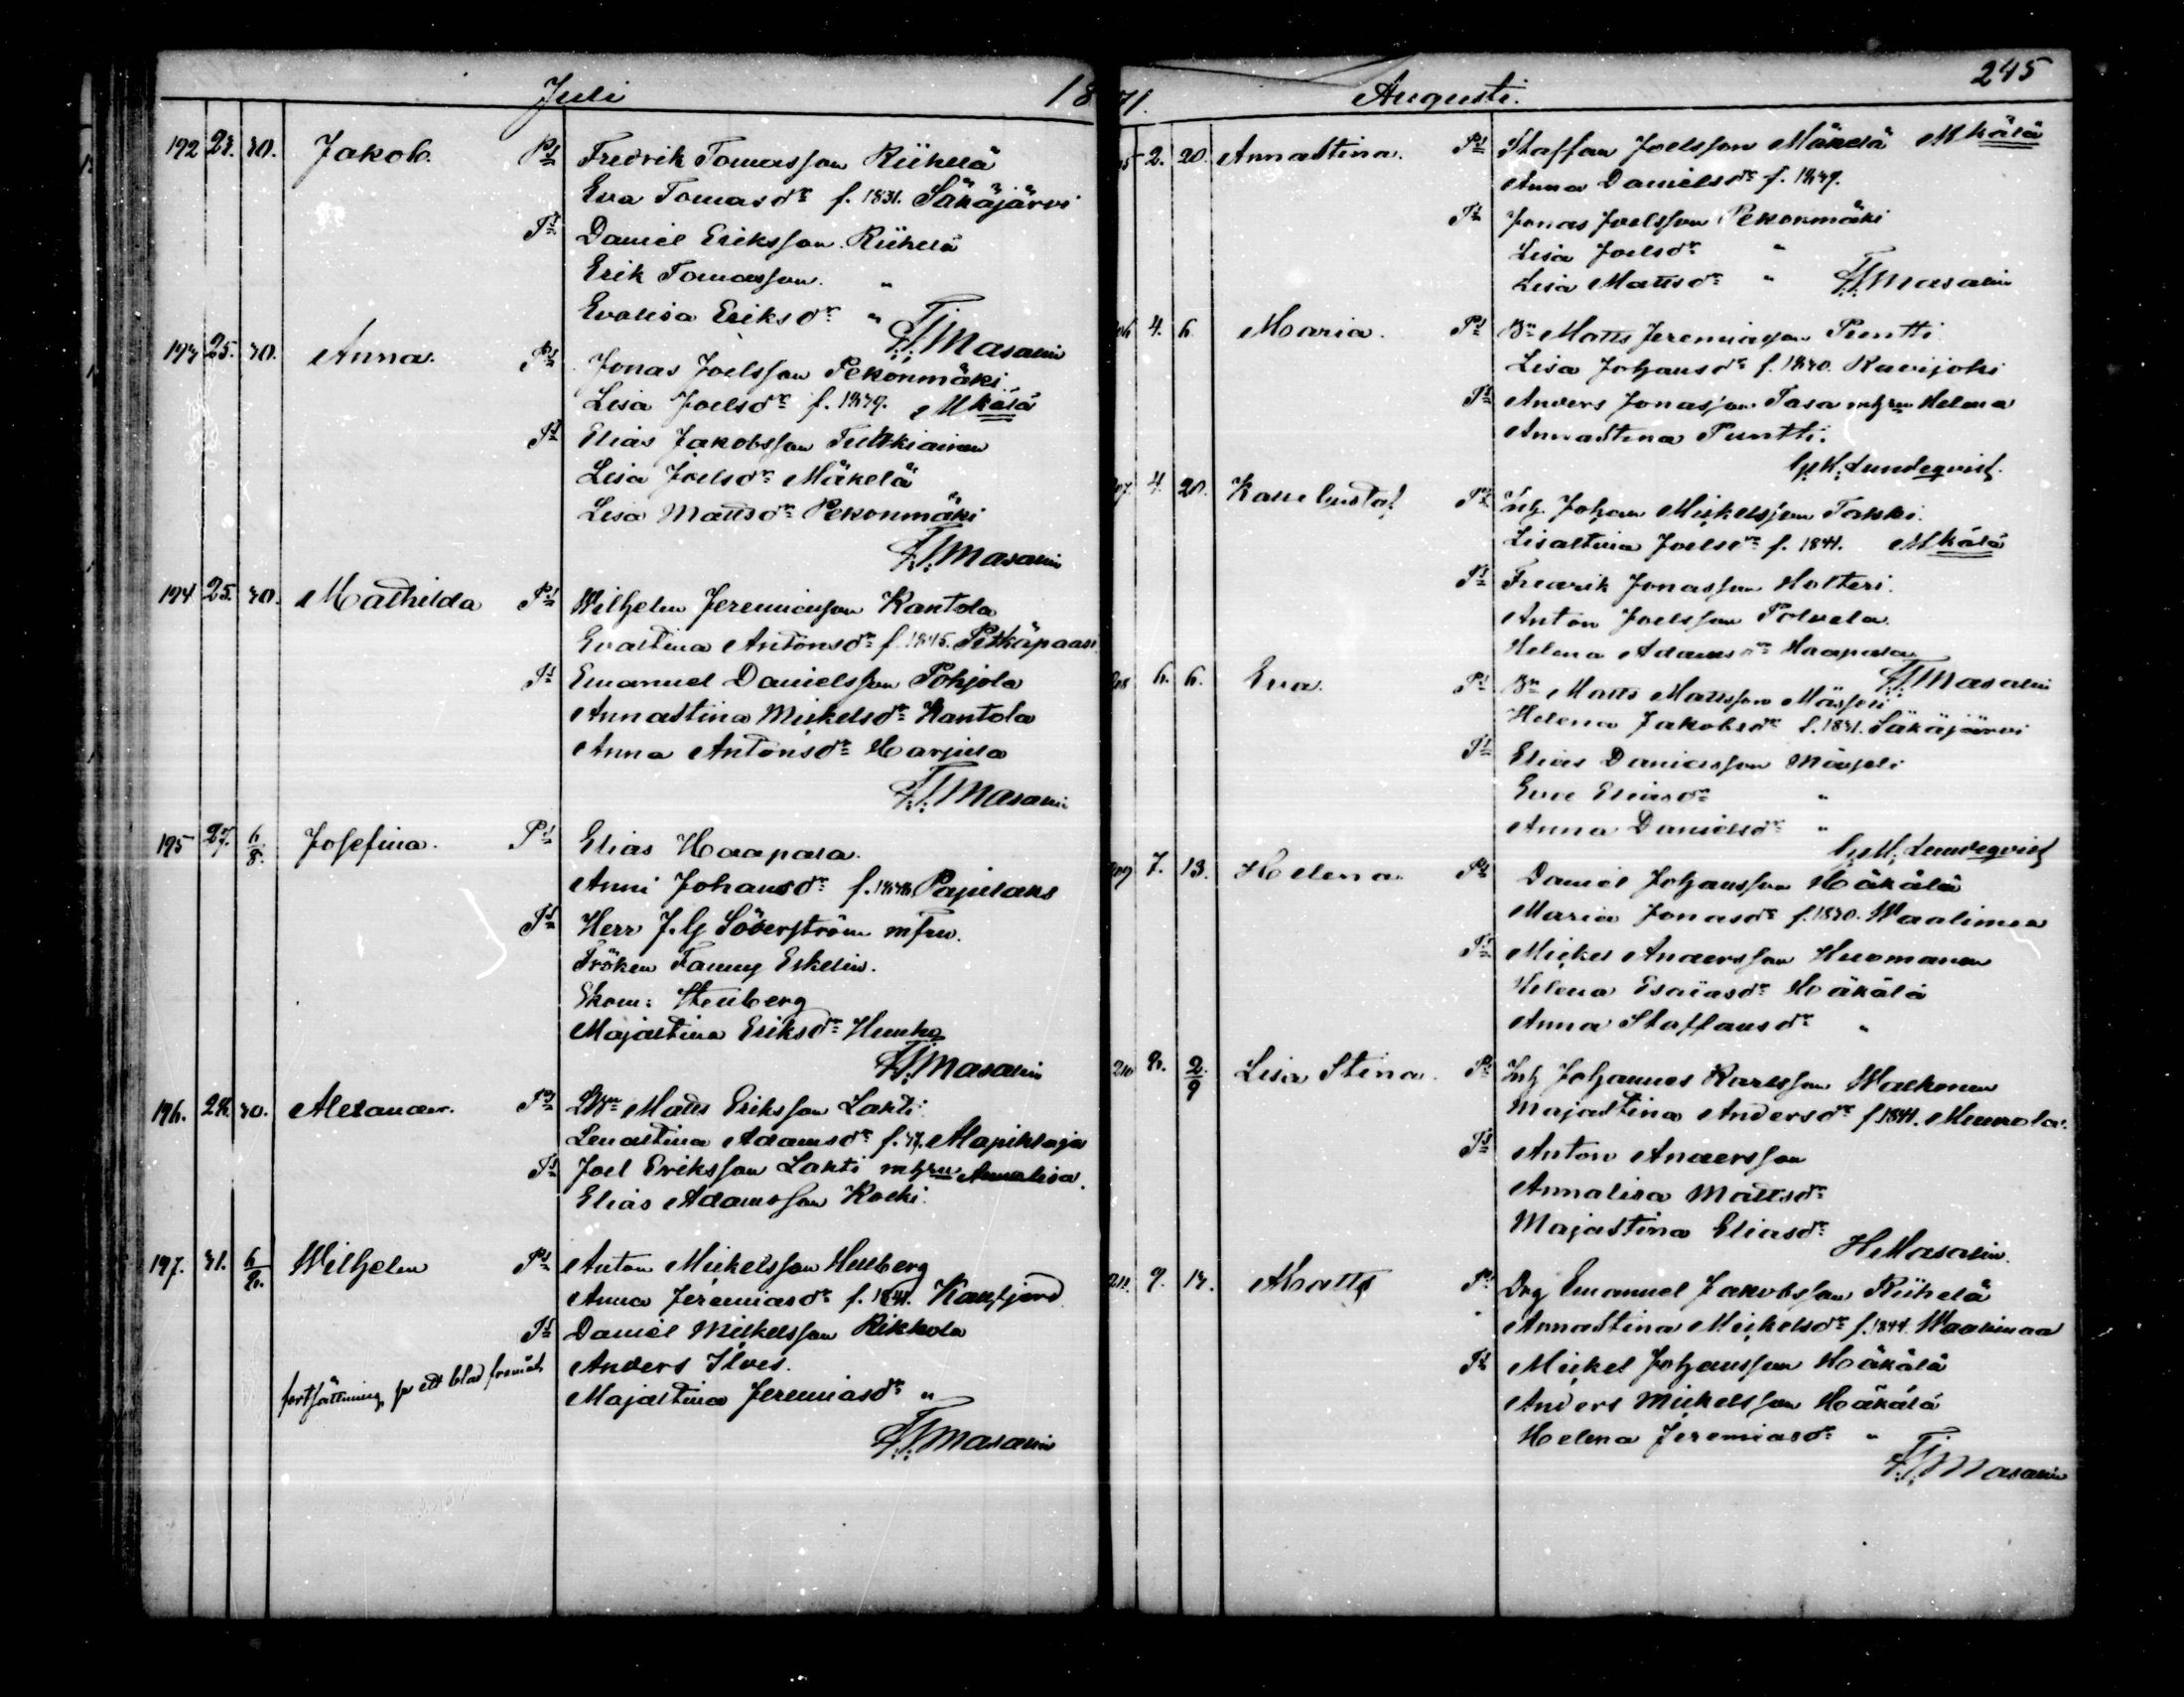 Juli 18
192 23. 30. Jakob. Pt Fredrik Tomasson Riihelä
Eva Tomasdr f. 1831. Säkäjärvi
Tt Daniel Eriksson Riihelä
Erik Tomasson "
Evalisa Eriksdr "
Masalin
193 25. 30. Anna. Pt Jonas Joelsson Pekonmäki
Lisa Joelsdr f. 1849. Mkälä
Tt Elias Jakobsson
Lisa Joelsdr Mäkelä
Lisa Mattsdr Pekonmäki
Masalin
194 25. 30. Mathilda Pt Wilhelm Jeremiasson Kantola
Evastina Antonsdr f. 1845. Pitkäpaasi
Tt Emanuel Danielsson Pohjola
Annastina Mickelsdr Kantola
Anna Antonsdr Harjula
Masalin
195 27. 6/8. Josefina. Pt Elias Haapasa.
Anni Johansdr f. Pajulaks
Tt Herr J. G Söderström m fru.
Fröken Fanny Eskelin.
Ekon: Stenberg
Majastina Eriksdr
Masalin
196. 28. 30. Alexander. Pt Matts Eriksson Lahti
Lenastina Adamsdr f. 37.
Tt Joel Eriksson Lahti m hru Annalisa.
Elias Adamsson Koski.
197. 31. 6/8. Wilhelm Pt Anton Mickelsson
Anna Jeremiasdr f. 1841.
Tt Daniel Mickelsson Rikkola
Anders Ilves.
Majastina Jeremiasdr "
Masalin
fortsättning på ett blad framåt
71. Augusti. 245
2. 20. Annastina. Pt Staffan Joelsson Mäkelä Mkälä
Anna Danielsdr f. 1849.
Tt Jonas Joelsson Pekonmäki
Lisa Joelsdr "
Lisa Mattsdr " Masalin
4. 6. Maria. Pt Bn Matts Jeremiasson Puntti
Lisa Johansdr f. 1840.
Tt Anders Jonasson Tasa m hru Helena
Annastina Puntti.
Lundeqvist.
4. 20. Karl Gustaf Pt Inh Johan Mickelsson Taski.
Lisastina Joelsdr f. 1841. Mkälä
Tt Fredrik Jonasson Holteri.
Anton Joelsson Polvela.
Helena Adamsdr Haapasa
Masalin
6. 6. Eva. Pt Bn Matts Mattsson Mässeli
Helena Jakobsdr f. 1831. Säkäjärvi
Tt Elias Danielsson Mässeli
Eva Eliasdr "
Anna Danielsdr "
Lundeqvist
7. 13. Helena Pt Daniel Johansson Häkälä
Maria Jonasdr f. 1830. Waalimaa
Tt Mickel Andersson Huomanen
Helena Esaiasdr Häkälä
Anna Staffansdr "
210 8. 2/9 Lisa Stina. Pt Inh Johannes Karlsson Walkonen
Majastina Andersdr f 1841.
Tt Anton Andersson
Annalisa Mattsdr
Majastina Eliasdr
H Masalin.
211. 9. 13. Matts Pt Drg Emanuel Jakobsson Riihelä
Annastina Mickelsdr f. 1844. Waalimaa
Tt Mickel Johansson Häkälä
Anders Mickelsson Häkälä
Helena Jeremiasdr "
Masalin